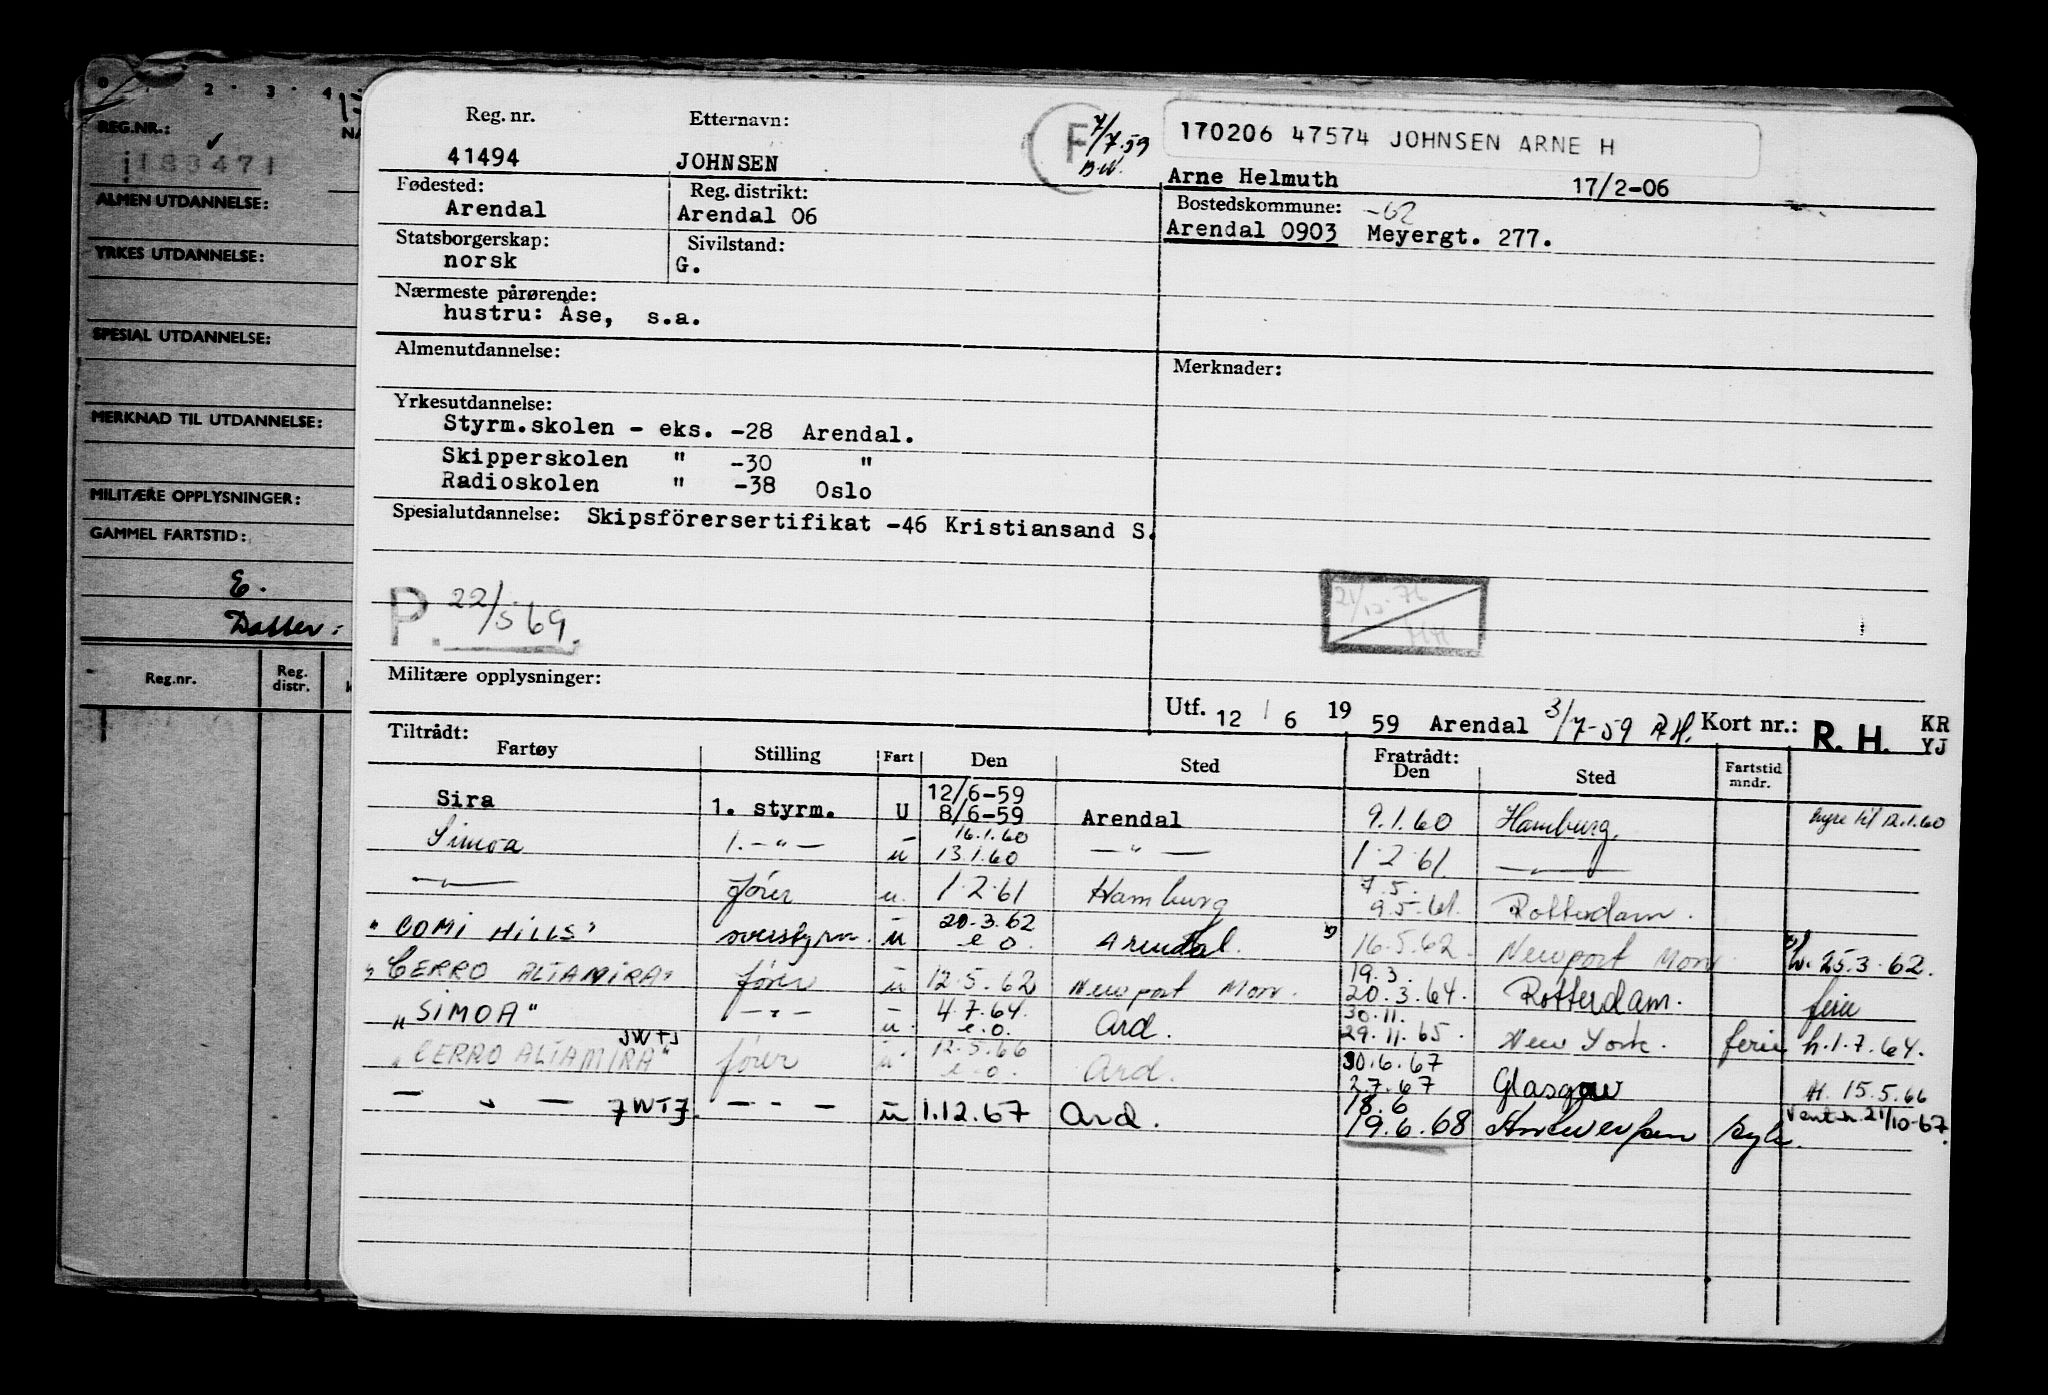 0 2 · 3 · 4
REG.NR.:
183471
ALMEN UTDANNELSE:
YRKES UTDANNELSE:
SPESIAL UTDANNELSE:
MERKNAD TIL UTDANNELSE:
MILITÆRE OPPLYSNINGER:
GAMMEL FARTSTID:
E.
Datter:
Reg.nr. Reg. distr.
Reg. nr. Etternavn:
41494 JOHNSEN
F 7/7-59
B.W.
170206 47574 JOHNSEN ARNE H
Arne Helmuth 17/2-06
Fødested: Reg. distrikt: Bostedskommune: -62
Arendal Arendal 06 Arendal 0903 Meyergt. 277.
Statsborgerskap: Sivilstand:
norsk G.
Nærmeste pårørende:
hustru: Åse, s.a.
Almenutdannelse: Merknader:
Yrkesutdannelse:
Styrm.skolen - eks. -28 Arendal.
Skipperskolen " -30 "
Radioskolen " -38 Oslo
Spesialutdannelse: Skipsförersertifikat -46 Kristiansand S.
P. 22/5 69.
21/12-76
HH
Militære opplysninger:
Utf. 12 / 6 19 59 Arendal 3/7-59 A.H. Kort nr.: R. H. KR YJ
Tiltrådt: Fratrådt:
Fartøy Stilling Fart Den Sted Den Sted Fartstid mndr.
Sira 1. styrm. U 12/6-59 8/6-59 Arendal 9.1.60 Hamburg. hyre til 12.1.60
Simoa 1. - " - u 16.1.60 13.1.60 - " - 1.2.61 - " -
- " - fører u. 1.2.61 Hamburg 7.5. 9.5.61. Rotterdam.
"COMI HILLS" overstyrm. u 20.3.62 e.o. Arendal. 16.5.62 Newport Mon h. 25.3.62.
"CERRO ALTAMIRA" fører u 12.5.62 Newport Mon. 19.3. 20.3.64. Rotterdam. ferie
"SIMOA" - " - u. 4.7.64. e.o. Ard. 30.11. 29.11.65. New York. ferie h.1.7.64.
"CERRO ALTAMIRA" JWTJ fører u. 12.5.66 e.o. Ard. 30.6.67 2.7.67 Glasgow H. 15.5.66
- " - JWTJ. - " - u 1.12.67 Ard. 18.6 19.6.68 Antwerpen syk. Vent.h.21/10-67.